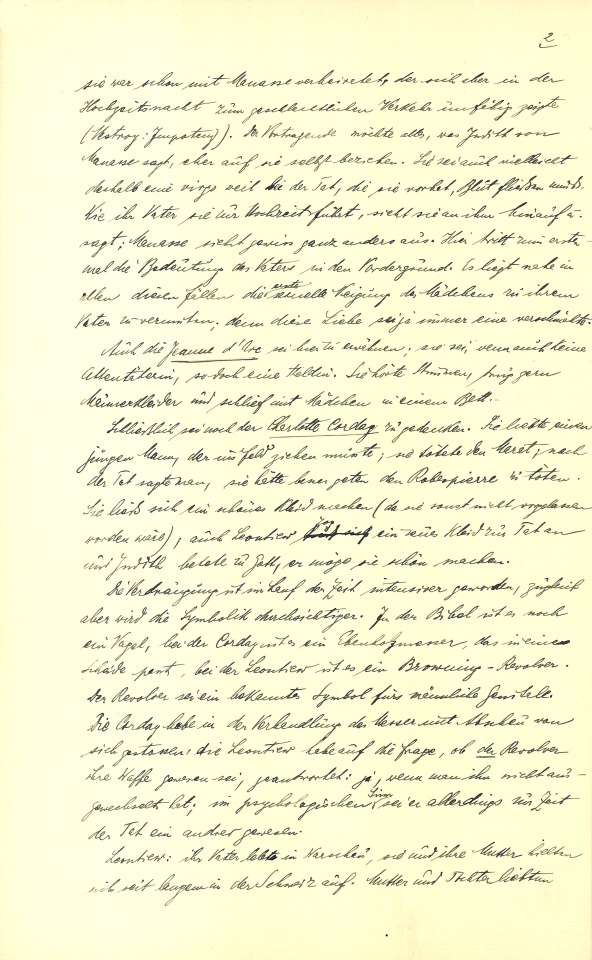 2
sie war schon mit Manasse verheiratet, der sich aber in der
Hochzeitsnacht zum geschlechtlichen Verkehr unfähig zeigte
(Nestroy: Impotenz)). Der Vortragende möchte alles, was Judith von
Manasse sagt, eher auf sie selbst beziehen. Sie sei auch vielleicht
deshalb eine virgo weil bei der Tat, die sie vorhat, Blut fließen muß.
Wie ihr Vater sie zur Hochzeit führt, sieht sie an ihm hinauf u.
sagt; Manasse sieht gewiss ganz anders aus. Hier tritt zum ersten-
mal die Bedeutung des Vaters in den Vordergrund. Es liegt nahe in
allen diesen Fällen die erste sexuelle Neigung des Mädchens zu ihrem
Vater zu vermuten, denn diese Liebe sei ja immer eine verschmähte.
Auch die Jeanne d'Arc sei hier zu erwähnen; sie sei, wenn auch keine
Attentäterin, so doch eine Heldin. Sie hörte Stimmen, trug gern
Männerkleider und schlief mit Mädchen in einem Bett.
Schließlich sei noch der Charlotte Corday zu gedenken. Sie liebte einen
jungen Mann, der ins Feld ziehen musste; sie tötete den Marat; nach
der Tat sagte man, sie hätte besser getan den Robespierre zu töten.
Sie ließ sich ein schönes Kleid machen (da sie sonst nicht vorgelassen
worden wäre), auch Leontiew zog ein neues Kleid zur Tat an
und Judith betete zu Gott, er möge sie schön machen.
Die Verdrängung ist im Lauf der Zeit intensiver geworden, zugleich
aber wird die Symbolik durchsichtiger. In der Bibel ist es noch
ein Nagel, bei der Corday ist es ein Ebenholzmesser, das in eine
Scheide passt, bei der Leontiew ist es ein Browning-Revolver.
Der Revolver sei ein bekanntes Symbol fürs männliche Genitale.
Die Corday habe in der Verhandlung das Messer mit Abscheu von
sich gestossen: die Leontiew habe auf die Frage, ob der Revolver
ihre Waffe gewesen sei, geantwortet: ja, wenn man ihn nicht aus-
gewechselt hat; im psychologischen Sinn sei er allerdings zur Zeit
der Tat ein andrer gewesen.
Leontiew: ihr Vater lebte in Warschau, sie und ihre Mutter hielten
sich seit langem in der Schweiz auf. Mutter und Tochter liebten